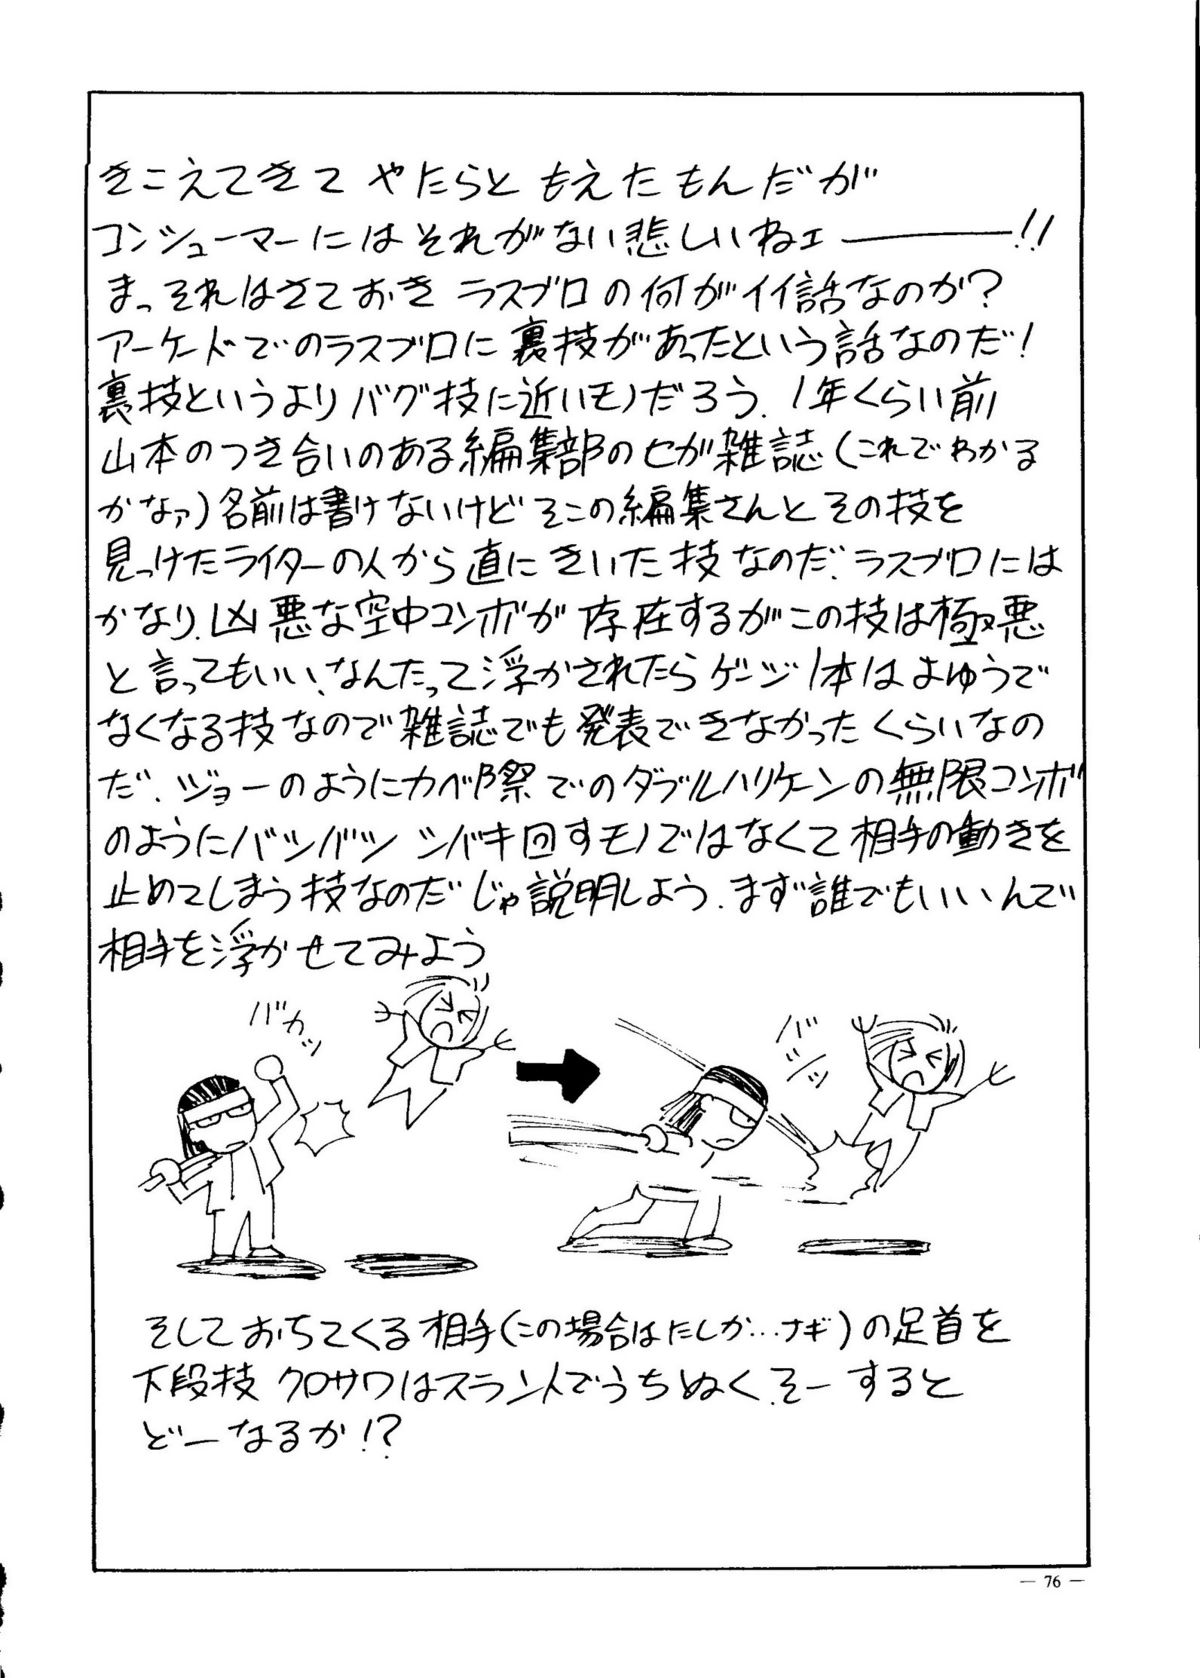 きこえてきて やたらと もえたもんだが
コンシューマーにはそれがない悲しいねェ―――!!
まっそれはさておき ラスブロの何がイイ話なのか?
アーケードでのラスブロに裏技があったという話なのだ!
裏技というよりバグ技に近いモノだろう.1年くらい前
山本のつき合いのある編集部のセガ雑誌(これでわかる
かなァ)名前は書けないけど そこの編集さんとその技を
見つけたライターの人から直にきいた技なのだ.ラスブロには
かなり凶悪な空中コンボが存在するがこの技は極悪
と言ってもいい.なんたって浮かされたらゲージ1本はよゆうで
なくなる技なので雑誌でも発表できなかったくらいなの
だ.ジョーのようにカベ際でのダブルハリケーンの無限コンボ
のようにバシバシ シバキ回すモノではなくて相手の動きを
止めてしまう技なのだ じゃ説明しよう.まず誰でもいいんで
相手を浮かせてみよう
バカッ
バシッ
そしておちてくる相手(この場合はたしか…ナギ)の足首を
下段技 クロサワはスラントでうちぬく.そーすると
どーなるか!?
— 76 —